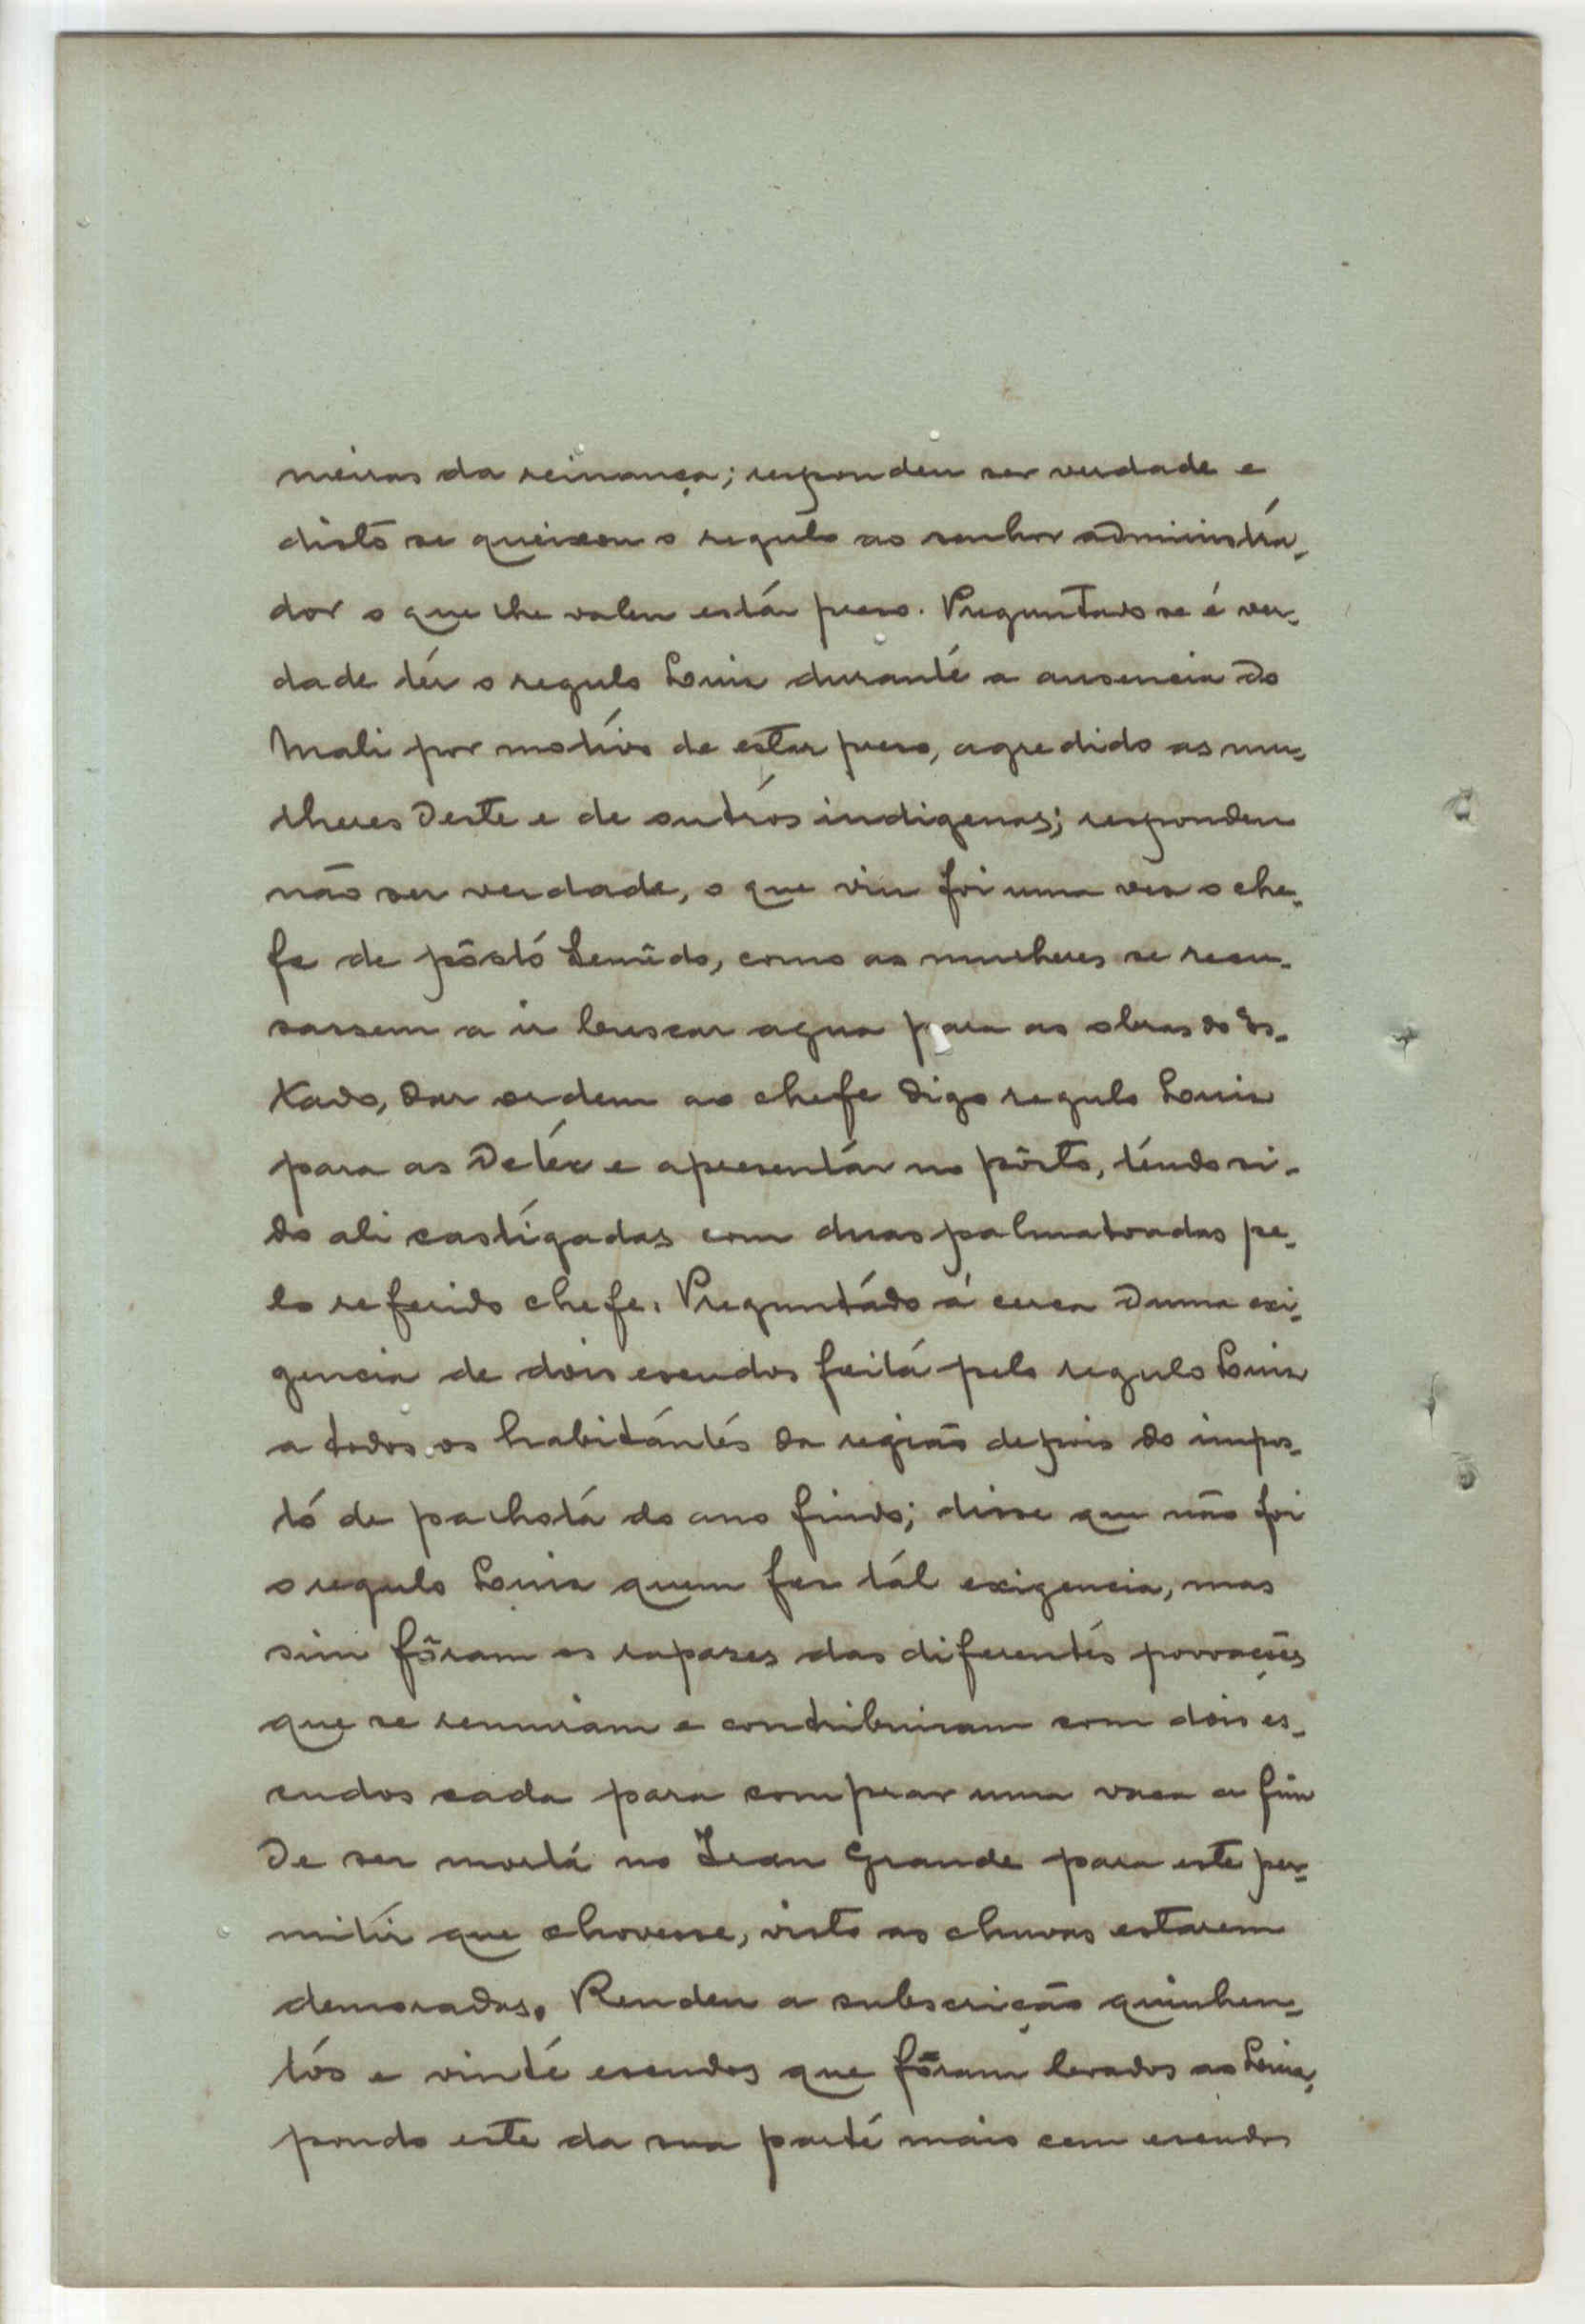 meiras da reinança; respondeu ser verdade e
disto se queixou o regulo ao senhor administra-
dor o que lhe valeu estár preso. Preguntado se é ver-
dade tér o regulo Louis durante a ausencia do
Mali por motivo de estar preso, agredido as mu-
lheres deste e de outros indigenas; respondeu
não ser verdade, o que viu foi uma vez o che-
fe de pôsto, como as mulheres se recu-
sassem a ir buscar agua para as obras do Es-
tado, dar ordem ao chefe digo regulo Louis
para as detêr e apresentár no pôsto, tendo si-
do ali castigadas com duas palmatoadas pe-
lo referido chefe. Preguntádo á cerca duma exi-
gencia de dois escudos feita pelo regulo Louis
a todos os habitántes da região depois do impos-
to de palhota do ano findo; disse que não foi
o regulo Louis quem fez tál exigencia, mas
sim fôram os rapazes das diferentes povoações
que se reuniram e contribuiram com dois es-
cudos cada para comprar uma vaca a fim
de ser morta no Iran Grande para este per-
mitir que chovesse, visto as chuvas estarem
demoradas. Rendeu a subscrição quinhen-
tos e vinte escudos que fôram levados ao Louis,
pondo este da sua parte mais cem escudos